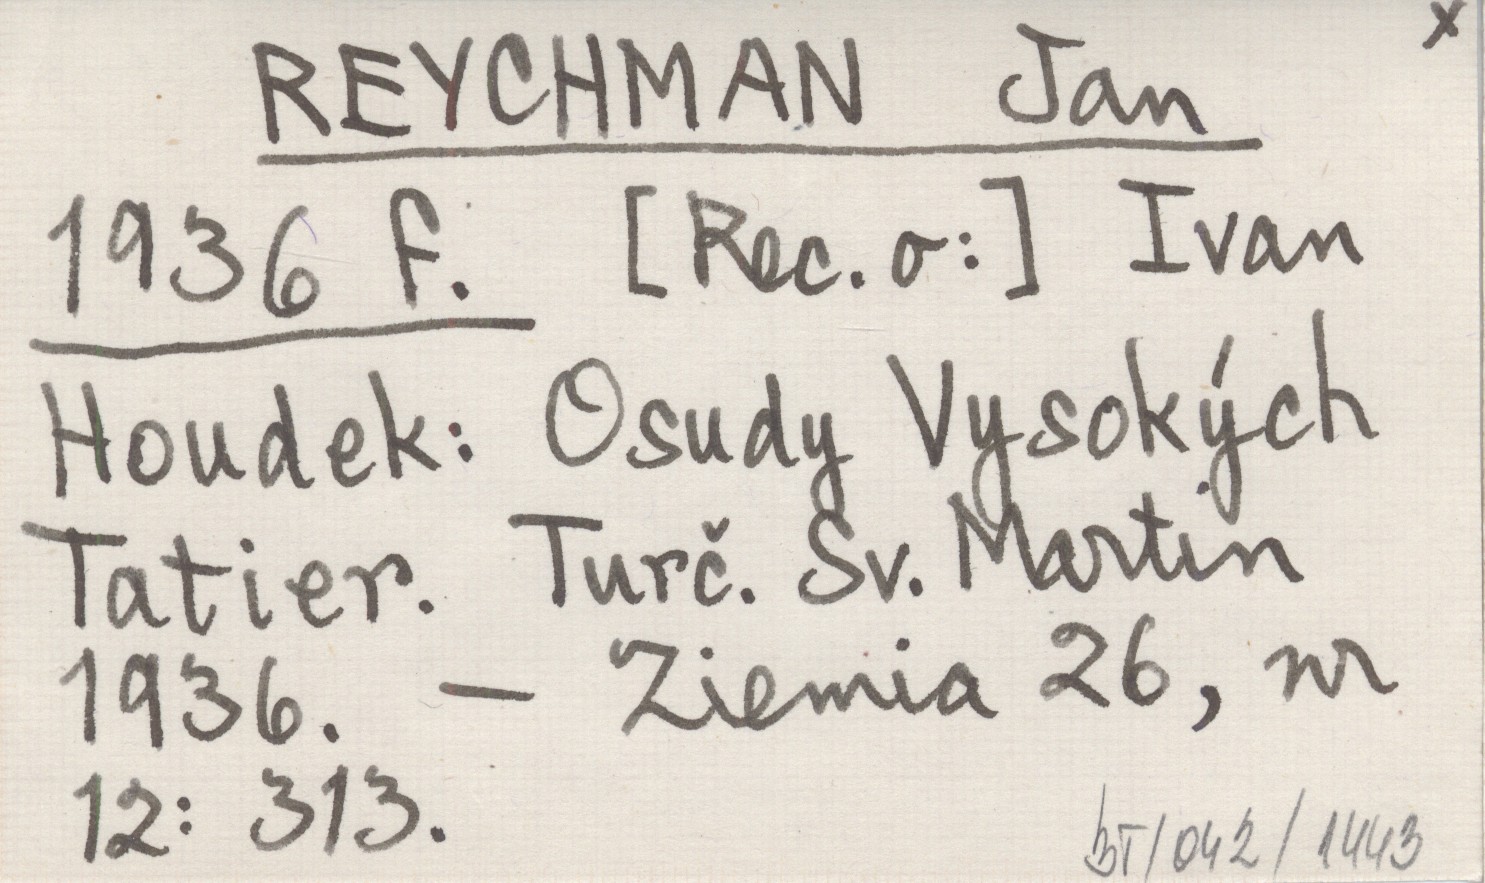 x
REYCHMAN Jan
1936 f. [Rec. o:] Ivan
Houdek: Osudy Vysokých
Tatier. Turč. Sv. Martin
1936. — Ziemia 26, nr
12: 313.
BT/042/1443